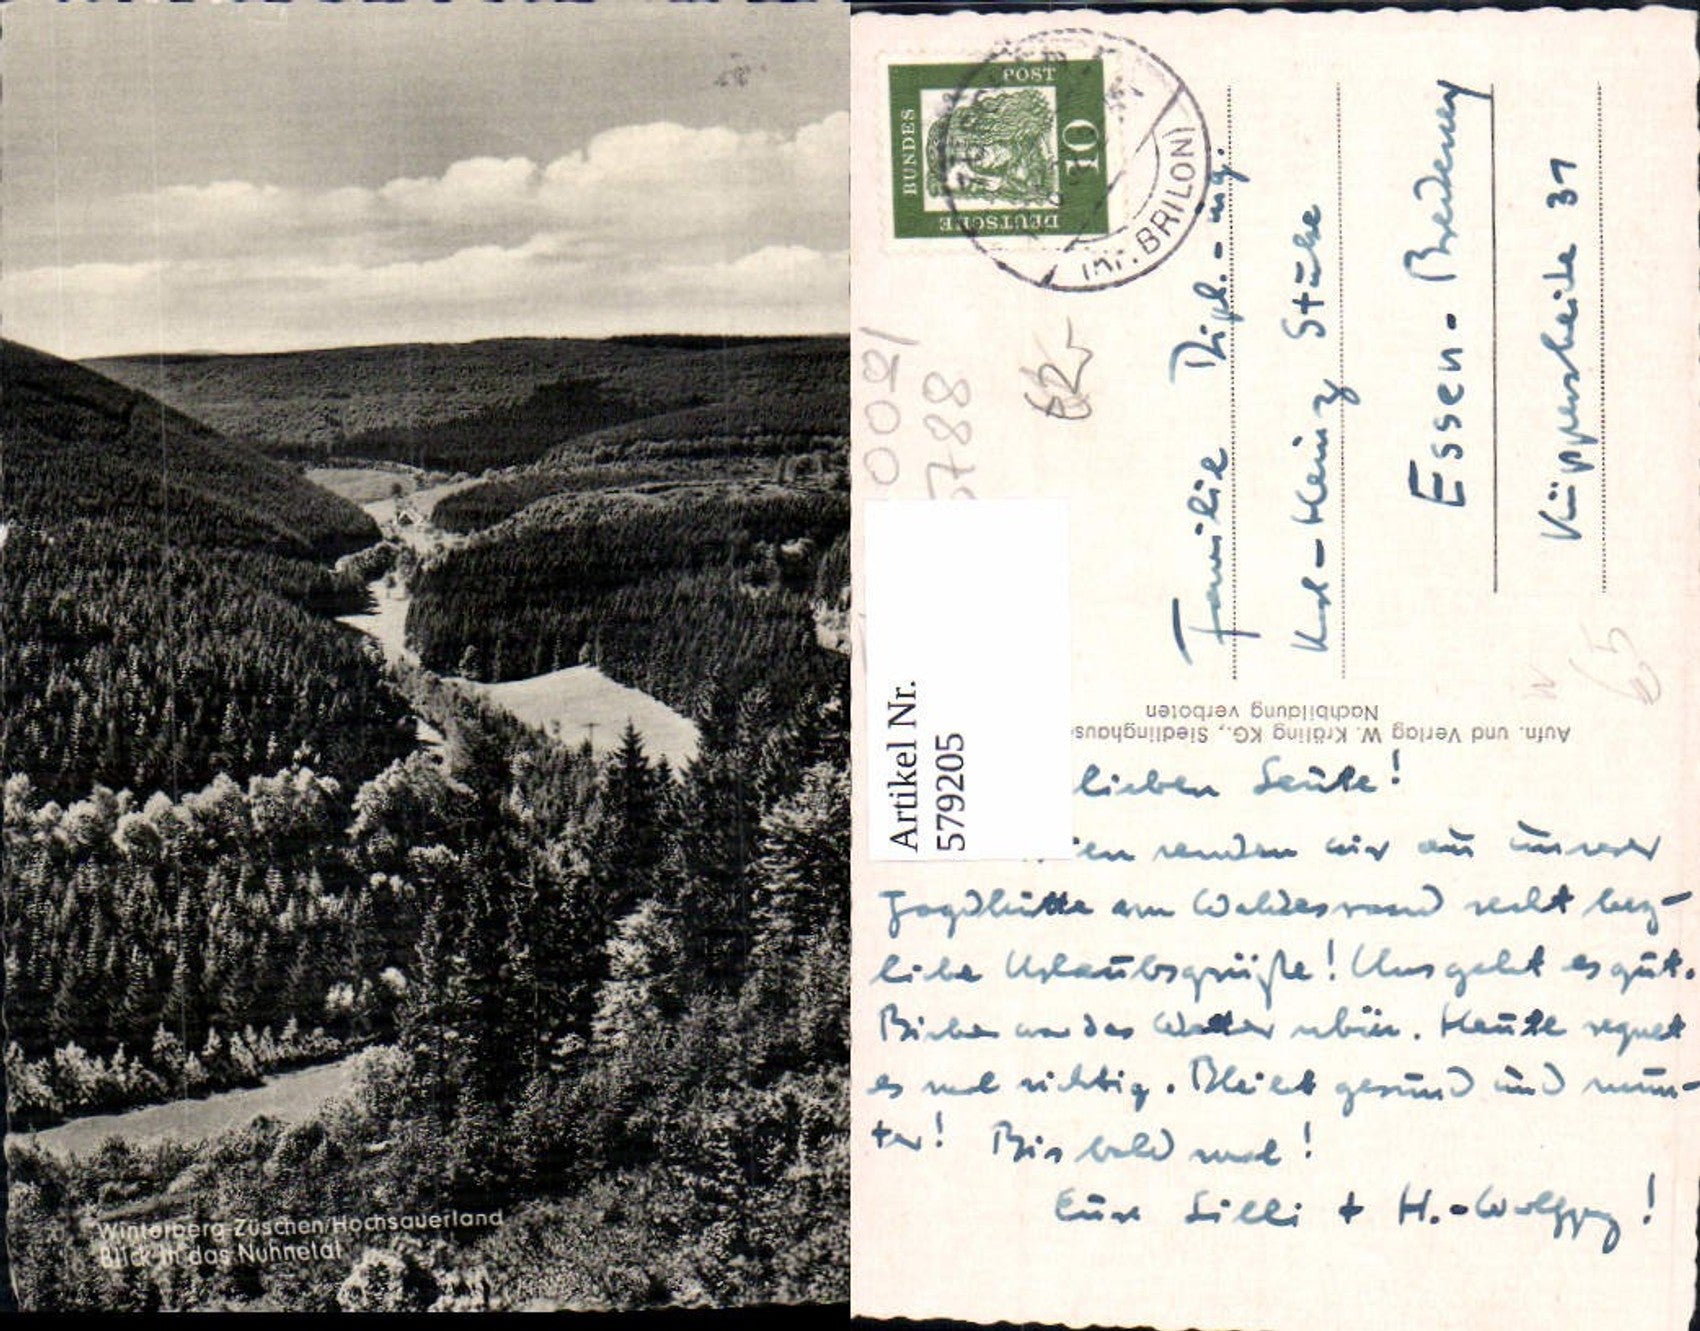 Winterberg-Züschen/Hochsauerland
Blick in das Nuhnetal
DEUTSCHE
BUNDES
POST
10
(Kr. BRILON)
Familie Dipl.-Ing.
Karl-Heinz Stühe
Essen-Bredeney
Küppersheide 31
Aufn. und Verlag W. Kräling KG., Siedlinghause
Nachbildung verboten
Artikel Nr.
579205
lieben Leute!
senden wir aus unserer
Jagdhütte am Waldesrand recht herz-
liche Urlaubsgrüße! Uns geht es gut.
Bisher war das Wetter schön. Heute regnet
es mal richtig. Bleibt gesund und mun-
ter! Bis bald mal!
Eure Lilli + H.-Wolfgang!